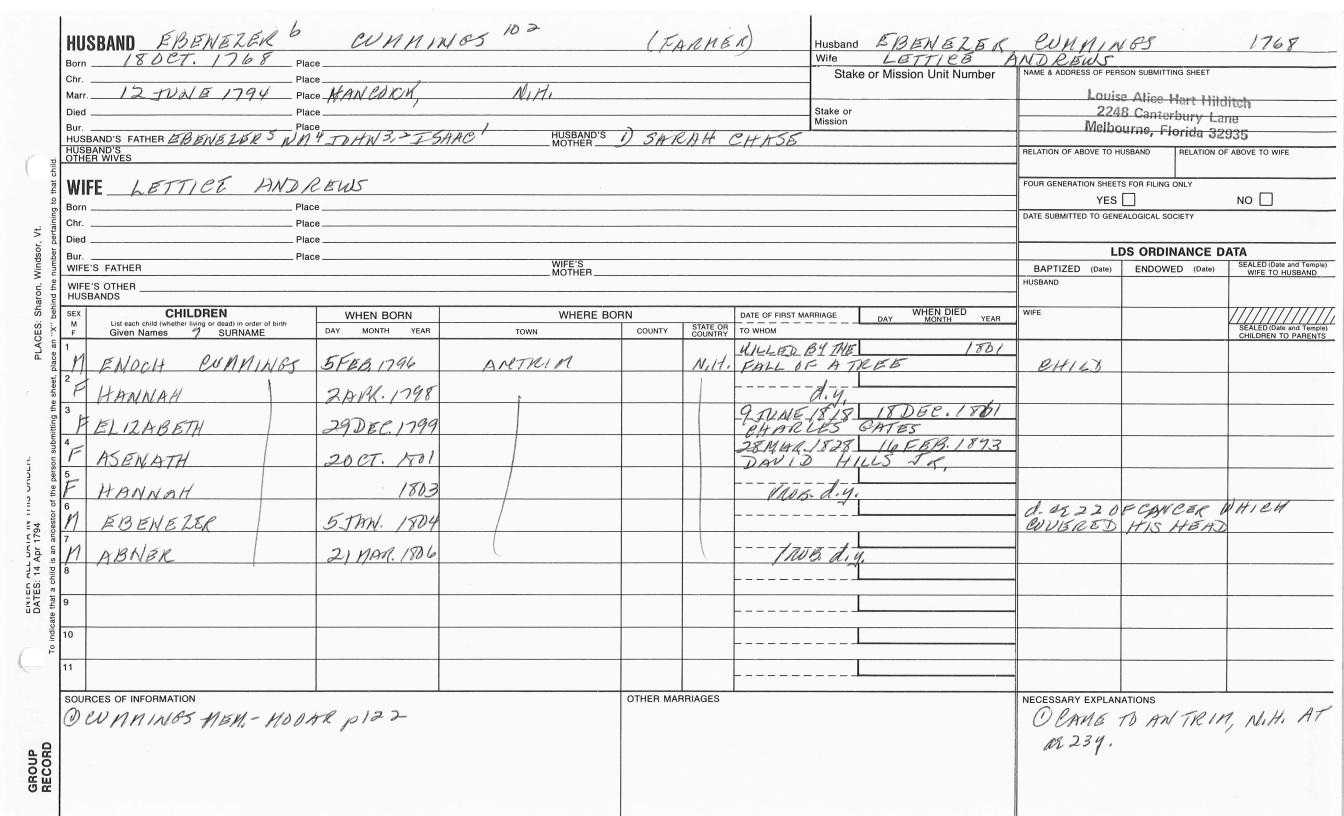 HUSBAND EBENEZER 6 CUMMINGS 102 (FARMER)
Born 18 OCT. 1768 Place
Chr. Place
Marr. 12 JUNE 1794 Place HANCOCK, N.H.
Died Place
Bur. Place
HUSBAND'S FATHER EBENEZER 5 NM 4 JOHN 3, 2 ISAAC 1 HUSBAND'S MOTHER 1) SARAH CHASE
HUSBAND'S OTHER WIVES
Husband EBENEZER CUMMINGS 1768
Wife LETTICE ANDREWS
Stake or Mission Unit Number
Stake or Mission
NAME & ADDRESS OF PERSON SUBMITTING SHEET
Louise Alice Hart Hilditch
2248 Canterbury Lane
Melbourne, Florida 32935
RELATION OF ABOVE TO HUSBAND RELATION OF ABOVE TO WIFE
FOUR GENERATION SHEETS FOR FILING ONLY
YES NO
DATE SUBMITTED TO GENEALOGICAL SOCIETY
WIFE LETTICE ANDREWS
Born Place
Chr. Place
Died Place
Bur. Place
WIFE'S FATHER WIFE'S MOTHER
WIFE'S OTHER HUSBANDS
LDS ORDINANCE DATA
BAPTIZED (Date) ENDOWED (Date) SEALED (Date and Temple) WIFE TO HUSBAND
HUSBAND
WIFE
SEALED (Date and Temple) CHILDREN TO PARENTS
SEX M F CHILDREN WHEN BORN WHERE BORN DATE OF FIRST MARRIAGE WHEN DIED
List each child (whether living or dead) in order of birth
Given Names SURNAME DAY MONTH YEAR TOWN COUNTY STATE OR COUNTRY TO WHOM DAY MONTH YEAR
1 M ENOCH CUMMINGS 5 FEB. 1796 ANTRIM N.H. KILLED BY THE FALL OF A TREE 1801 CHILD
2 F HANNAH 2 APR. 1798 d.y.
3 F ELIZABETH 29 DEC. 1799 9 JUNE 1818 CHARLES GATES 18 DEC. 1861
4 F ASENATH 20 OCT. 1801 28 MAR. 1828 DAVID HILLS JR. 16 FEB. 1873
5 F HANNAH 1803 PROB. d.y.
6 M EBENEZER 5 JAN. 1804 d. æ 22 OF CANCER WHICH COVERED HIS HEAD
7 M ABNER 21 MAR. 1806 PROB. d.y.
8
9
10
11
SOURCES OF INFORMATION
① CUMMINGS MEM. - MOOAR p122
OTHER MARRIAGES
NECESSARY EXPLANATIONS
① CAME TO ANTRIM, N.H. AT
æ 23y.
PLACES: Sharon, Windsor, Vt.
DATES: 14 Apr 1794
To indicate that a child is an ancestor of the person submitting the sheet, place an "X" behind the number pertaining to that child.
GROUP RECORD